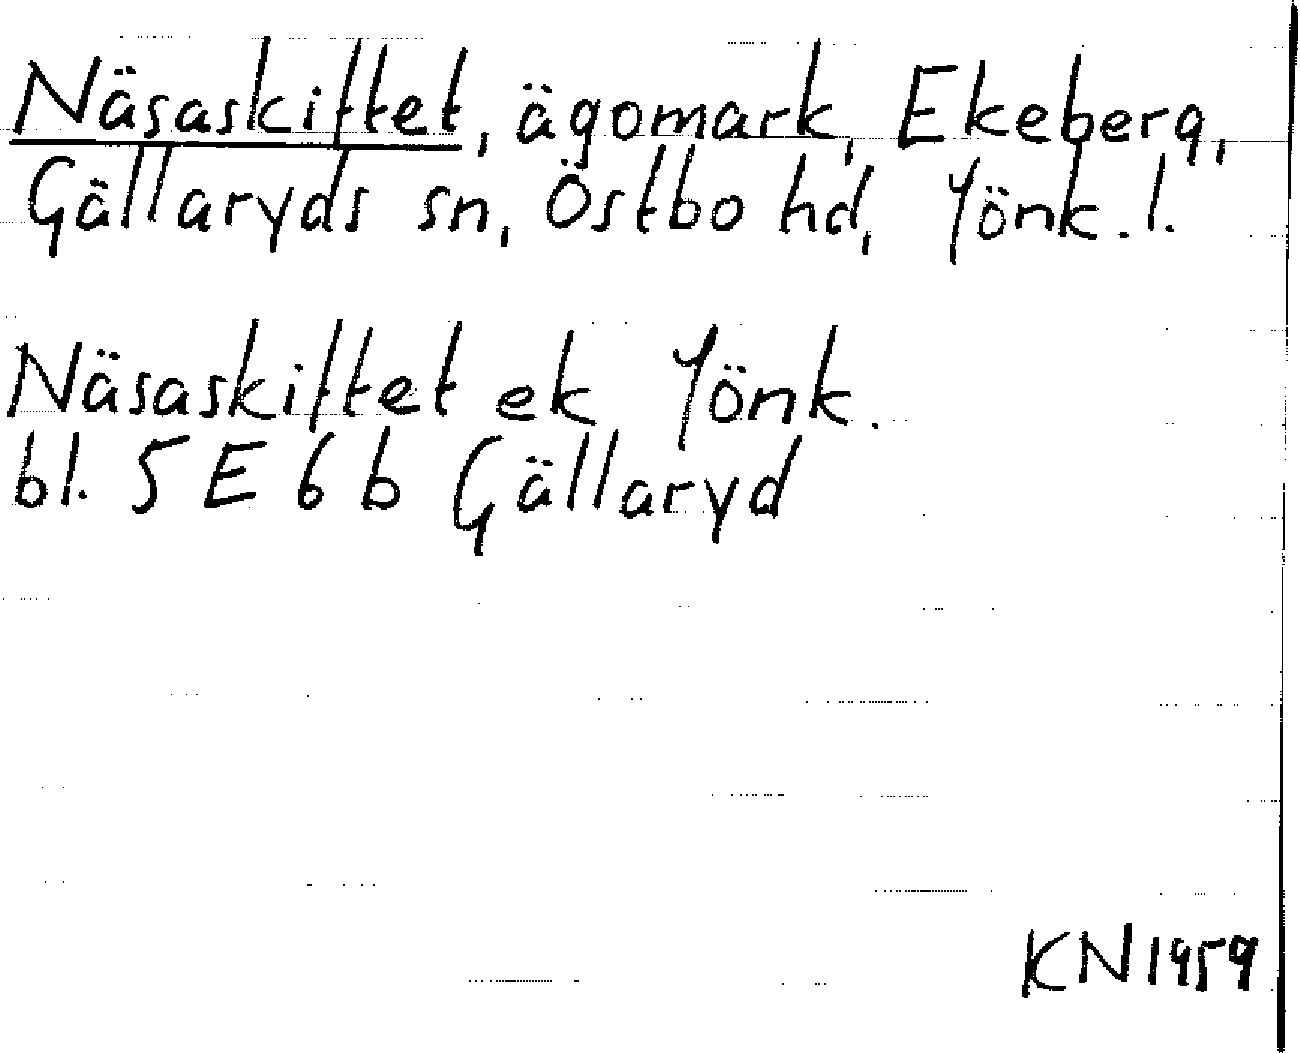 Näsaskiftet, ägomark, Ekeberg,
Gällaryds sn, Östbo hd, Jönk. l.
Näsaskiftet ek Jönk.
bl. 5 E 6 b Gällaryd
KN 1959